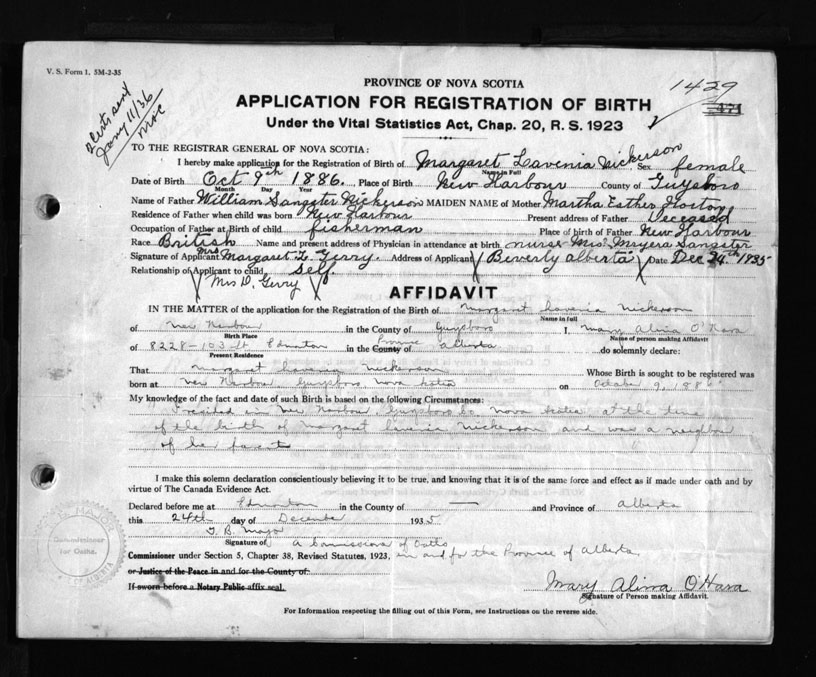 V. S. Form 1, 5M-2-35
2 certs sent
Jany 11/36
PROVINCE OF NOVA SCOTIA
1429
471
APPLICATION FOR REGISTRATION OF BIRTH
Under the Vital Statistics Act, Chap. 20, R. S. 1923
TO THE REGISTRAR GENERAL OF NOVA SCOTIA:
I hereby make application for the Registration of Birth of Margaret Lavenia Nickerson Sex female
Name in Full
Date of Birth Oct 9th 1886. Place of Birth New Harbour County of Guysboro
Month Day Year
Name of Father William Sangster Nickerson MAIDEN NAME of Mother Martha Esther Horton
Residence of Father when child was born New Harbour Present address of Father Deceased
Occupation of Father at Birth of child fisherman Place of birth of Father New Harbour
Race British Name and present address of Physician in attendance at birth nurse Mrs. Sangster
Signature of Applicant Mrs Margaret L. Gerry Address of Applicant Beverly alberta Date Dec 24th 1935
Relationship of Applicant to child self
Mrs D. Gerry
AFFIDAVIT
IN THE MATTER of the application for the Registration of the Birth of margaret lavenia nickerson
Name in full
of New Harbour in the County of Guysboro I, mary alina O'Hara
Birth Place Name of person making Affidavit
of 8228-103 st Edmonton in the County of Province alberta do solemnly declare:
Present Residence
That margaret lavenia nickerson Whose Birth is sought to be registered was
born at New Harbour Guysboro nova scotia on October 9, 1886
My knowledge of the fact and date of such Birth is based on the following Circumstances:
I resided in New Harbour Guysboro Co. nova scotia at the time
of the birth of margaret lavenia nickerson and was a neighbour
of her parents
I make this solemn declaration conscientiously believing it to be true, and knowing that it is of the same force and effect as if made under oath and by
virtue of The Canada Evidence Act.
Declared before me at Edmonton in the County of — and Province of alberta
this 24th day of December 1935.
Signature of a Commissioner of Oaths
Commissioner under Section 5, Chapter 38, Revised Statutes, 1923, in and for the Province of Alberta.
or Justice of the Peace in and for the County of
If sworn before a Notary Public affix seal.
Commissioner
for Oaths
Mary Alina O'Hara
Signature of Person making Affidavit.
For Information respecting the filling out of this Form, see Instructions on the reverse side.